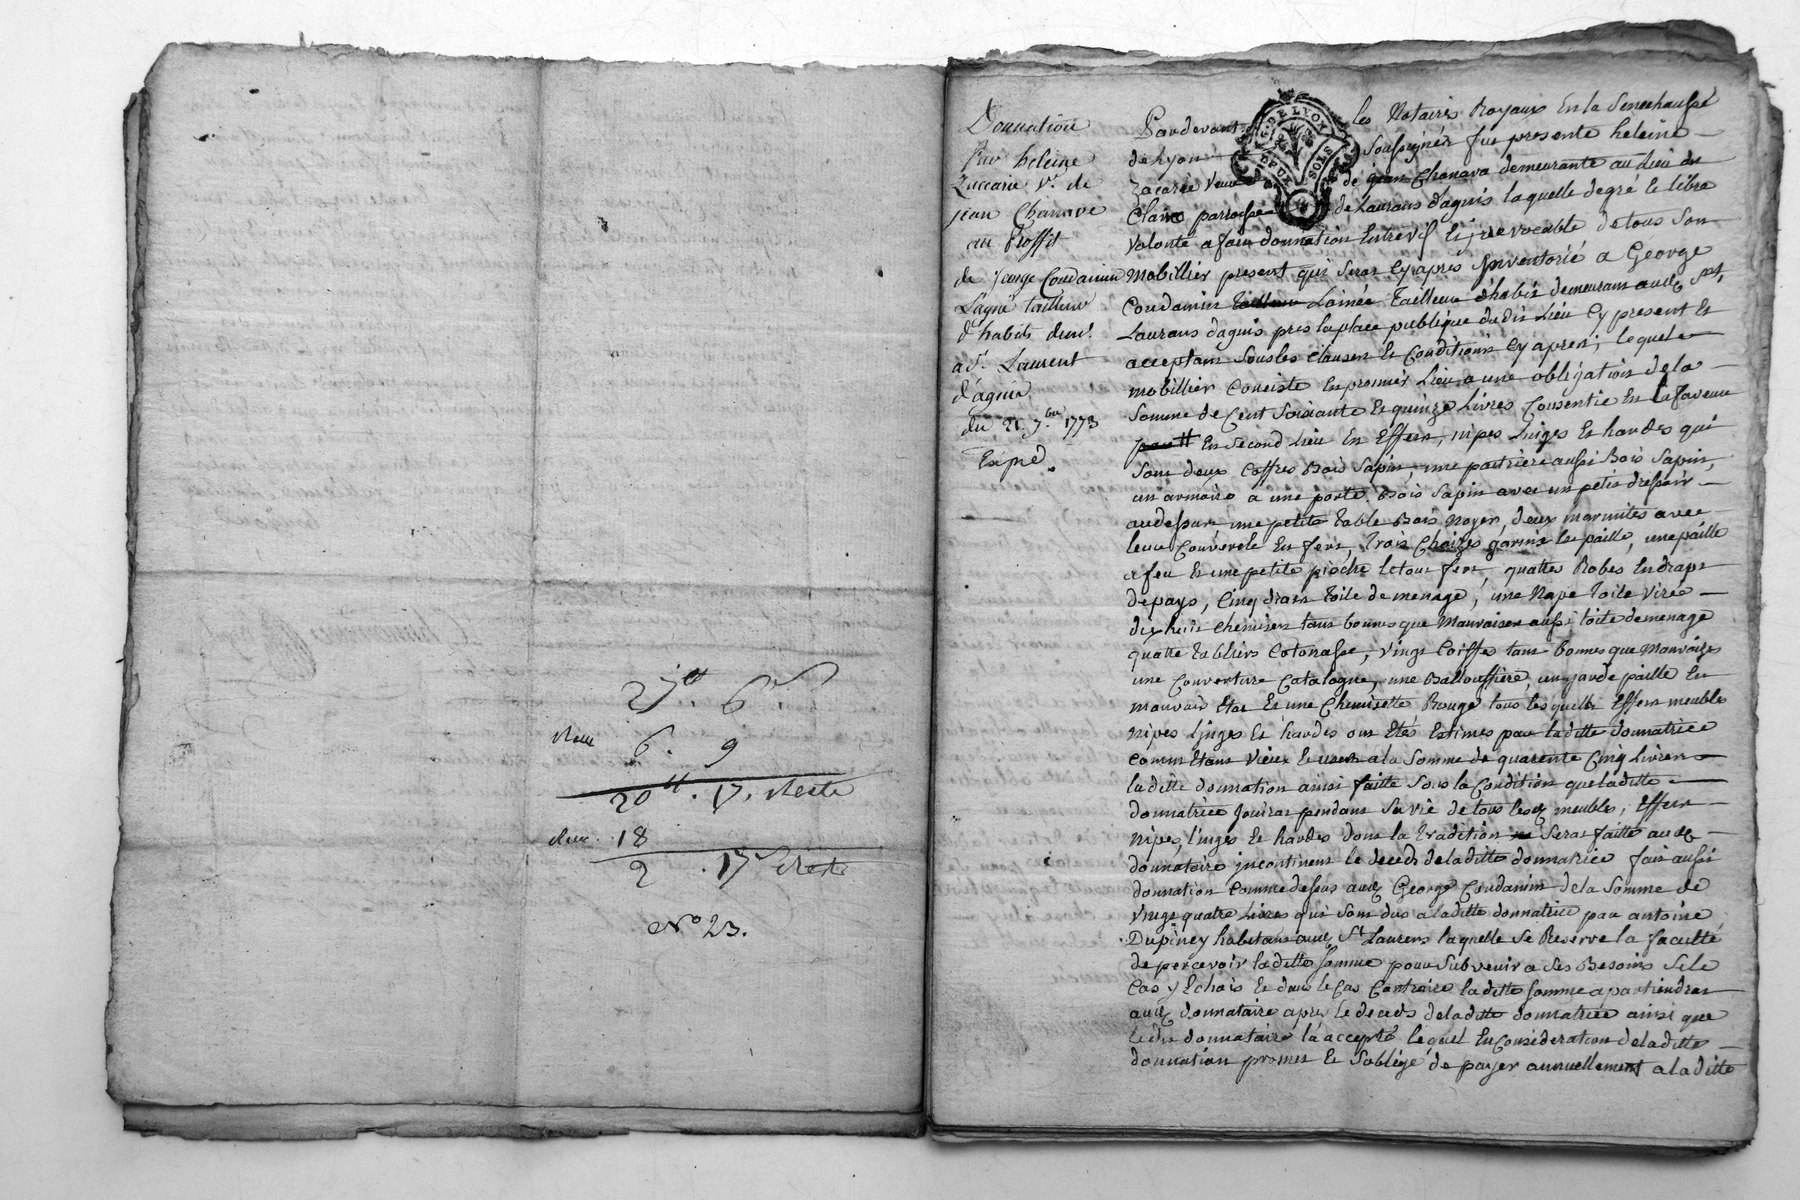 27tt. 6s.
6. 9
20tt. 17. Reste
18
2 . 17s Reste
N° 23.
Donnation
par heleine
Zaccarie Ve. de
jean Chanavé
au Proffit
de jeorge Coudamin
L'ayné tailleur
d'habits demt.
a St. Laurent
d'agnin
du 21. 7.bre 1773
Expié.
G. DE LYON
DEUX SOLS
Pardevant les Notaires Royaux En la Senechaussé
de Lyon Soussignés fut presente heleine
Zacarie Veuve de jean Chanava demeurante au Lieu du
Clair parroisse de Laurans dagnis laquelle de gré et libre
volonté a fait donnation Entrevif et jrrevocable de tous son
Mobillier present qui seras cy apres Jnventorié a George
Coudamin Lainée Tailleur d'habis demeurant audit St.
Laurans dagnis pres la place publique dudit Lieu Cy present et
acceptant sous les clauses et Conditions cy apres; lequel
mobillier Consiste En premier Lieu a une obligation de la
Somme de Cent Soixante et quinze Livres Consentie En sa faveur
En second Lieu En Effets, nipes Linges et hardes qui
sont deux Coffres Bois Sapin, une paitriere aussi Bois Sapin,
un armoire a une porte Bois Sapin avec un petit dressoir
audessus une petite table Bois Noyer, deux marmites avec
leur Couvercle En fert, trois Chaizes garnie les paille, une paille
a feu et une petite pioche le tout fert, quattre Robes En draps
de pays, Cinq draps toile de menage, une Nape toile Virée
dix huit chemises tant bonnes que Mauvaises aussi toile de menage
quatre tabliers Cotonasse, vingt Coiffe tant bonnes que Mauvaizes
une Couverture Catalogne, une Balouffiere, un garde paille En
mauvais Etat et une Chemisette Rouge tous lesquels Effets meubles
Nipes Linges et hardes ont Etés Estimés par laditte donnatrice
comm Etant Vieux et usés a la Somme de quarente Cinq Livres
laditte donnation ainsi faitte sous la Condition que laditte
donnatrice Jouiras pendant Sa vie de tous lesdits meubles, Effets
Nipes, linges et hardes dont la tradition seras faitte audit
donnataire jncontinent le deceds de laditte donnatrice fait aussi
donnation Comme dessus audit George Coudamin de la Somme de
Vingt quatre Livres qui sont dus a laditte donnatrice par antoine
Dupiney habitant audit St Laurens laquelle se Reserve la faculté
de percevoir laditte somme pour subvenir a ses Besoins si le
Cas y Echois et dans le Cas Contraire laditte somme apartiendras
audit donnataire apres le deceds de laditte donnatrice ainsi que
ledit donnataire l'a accepté lequel En Consideration de laditte
donnation promet et s'oblige de payer annuellement a laditte